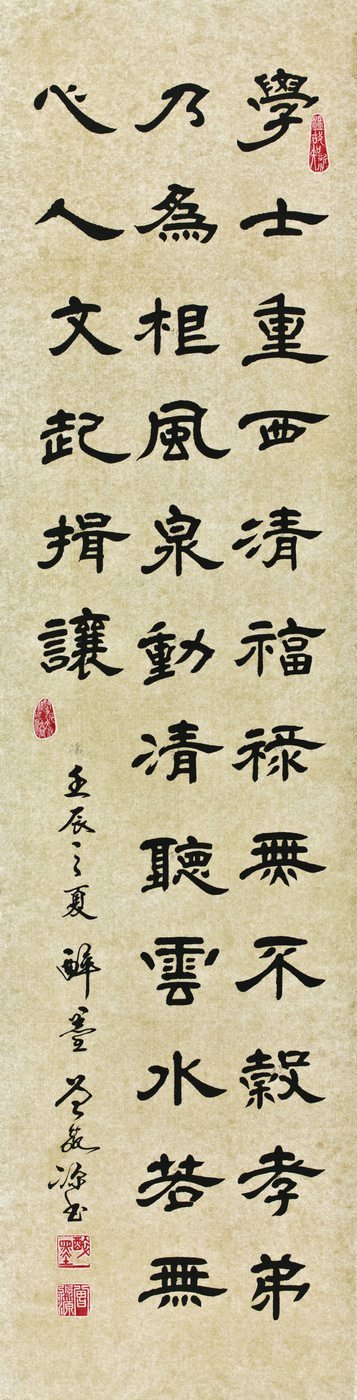 學士重西清福祿無不穀孝弟
乃為相風泉動清聽雲水若無
心人文起揖讓
壬辰之夏醉墨書
醉墨